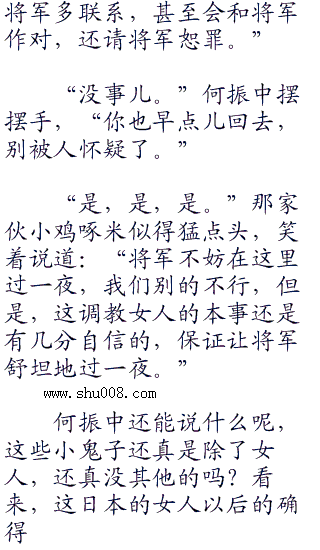 将军多联系，甚至会和将军
作对，还请将军恕罪。”
“没事儿。”何振中摆
摆手，“你也早点儿回去，
别被人怀疑了。”
“是，是，是。”那家
伙小鸡啄米似得猛点头，笑
着说道：“将军不妨在这里
过一夜，我们别的不行，但
是，这调教女人的本事还是
有几分自信的，保证让将军
舒坦地过一夜。”
www.shu008.com
何振中还能说什么呢，
这些小鬼子还真是除了女
人，还真没其他的吗？看
来，这日本的女人以后的确
得